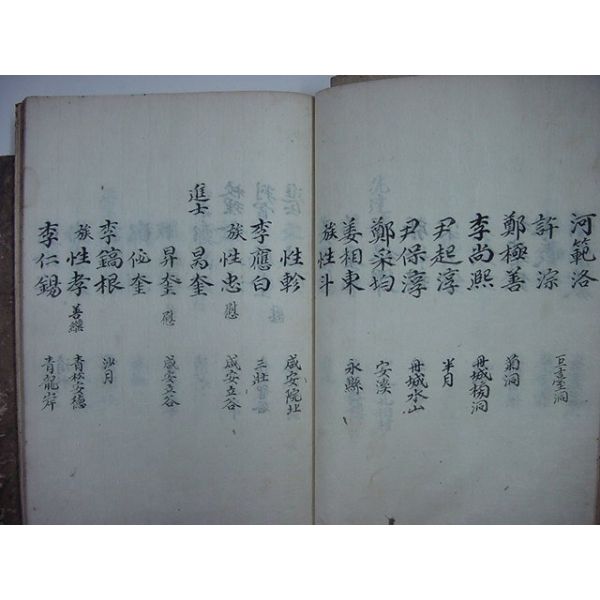 河範洛
許淙
鄭極善 菊洞
李尚熙 丹城梅洞
尹起淳 半月
尹保淳 丹城水山
鄭采均 安溪
姜相東 永縣
族性斗
性軫 咸安院北
李應白 三壯
族性忠 慰 咸安立谷
進士 昺奎
昇奎 慰 咸安立谷
佖奎
李鎬根 沙月
族性孝 善 青松安德
李仁錫 青龍